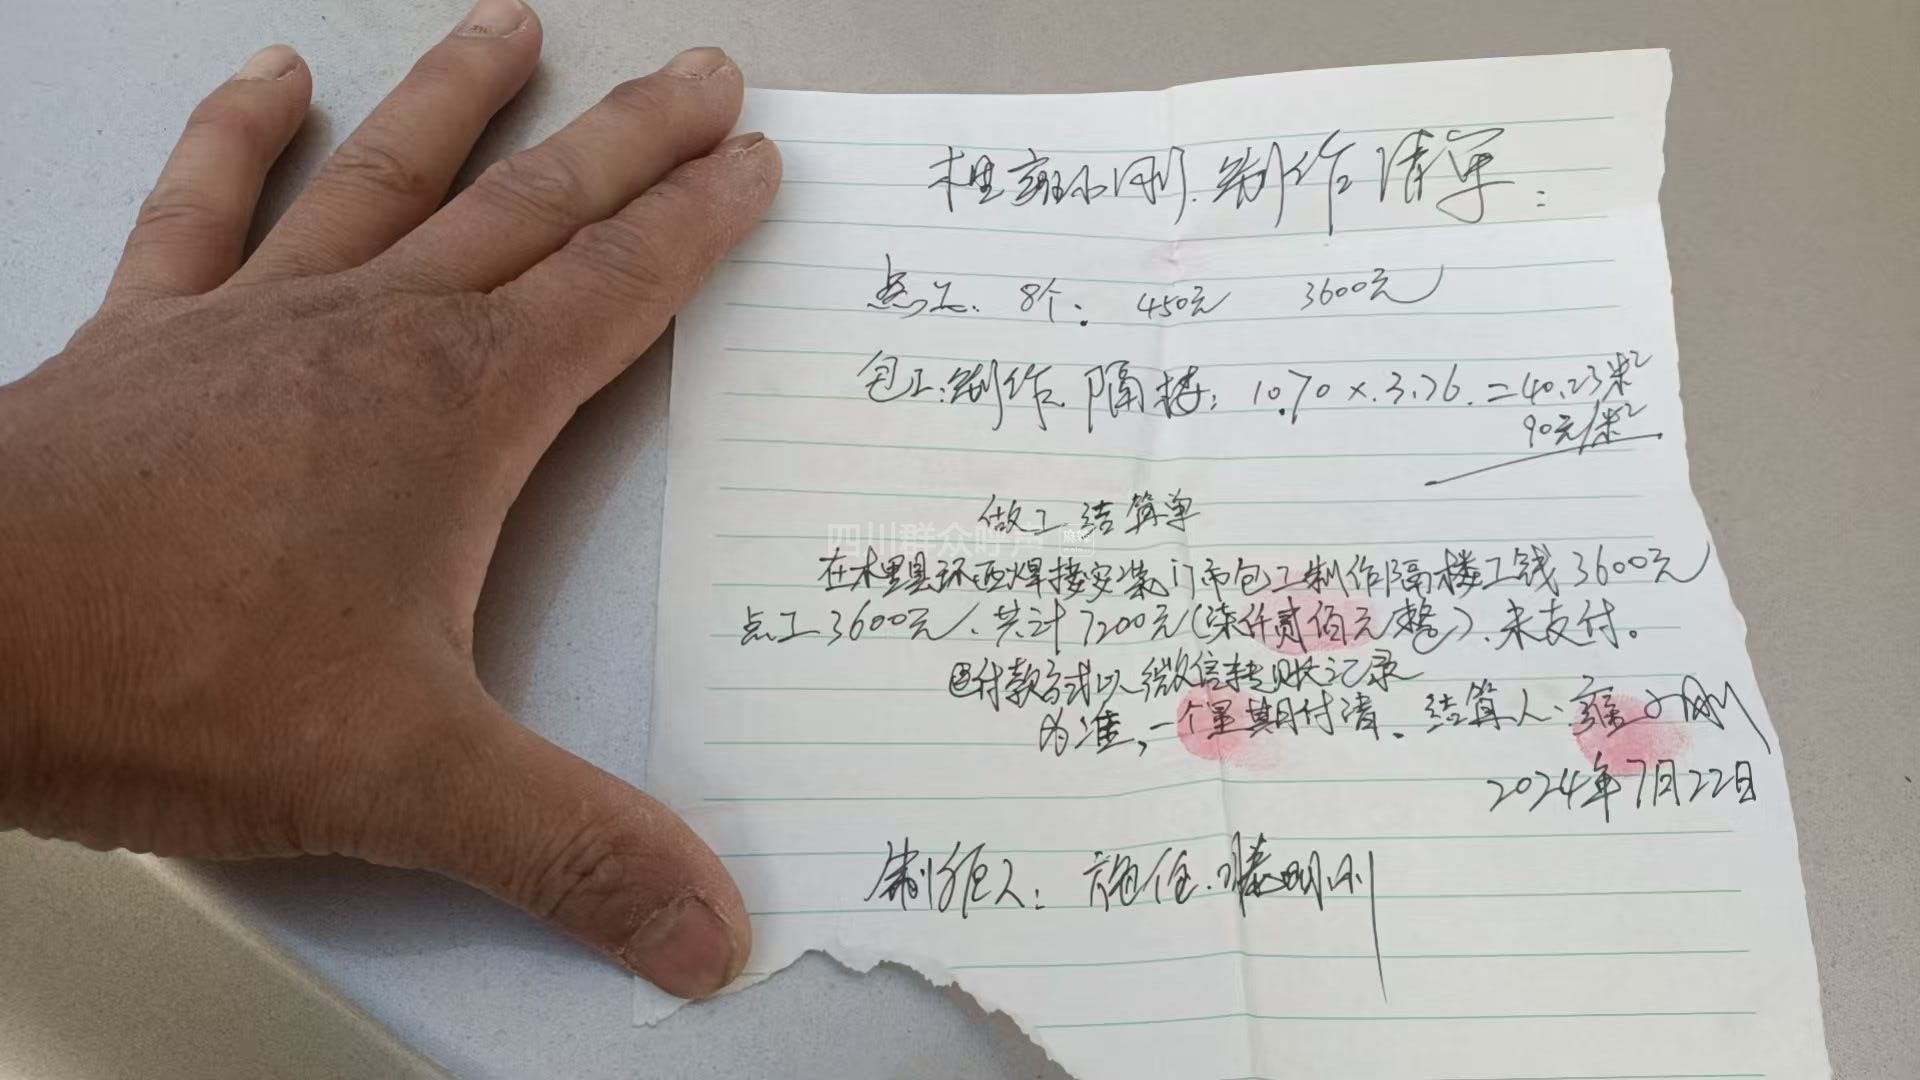 木里雍小刚.制作清单:
点工. 8个: 450元 3600元
包工:制作.隔楼: 10.70×3.76.=40.23米²
90元/米²
做工结算单
四川群众呼声
在木里县环西焊接安装门市包工制作隔楼工钱3600元
点工3600元.共计7200元(柒仟贰佰元整).未支付。
付款方式以微信转账记录
为准,一个星期付清.结算人:雍小刚
2024年7月22日
制作人: